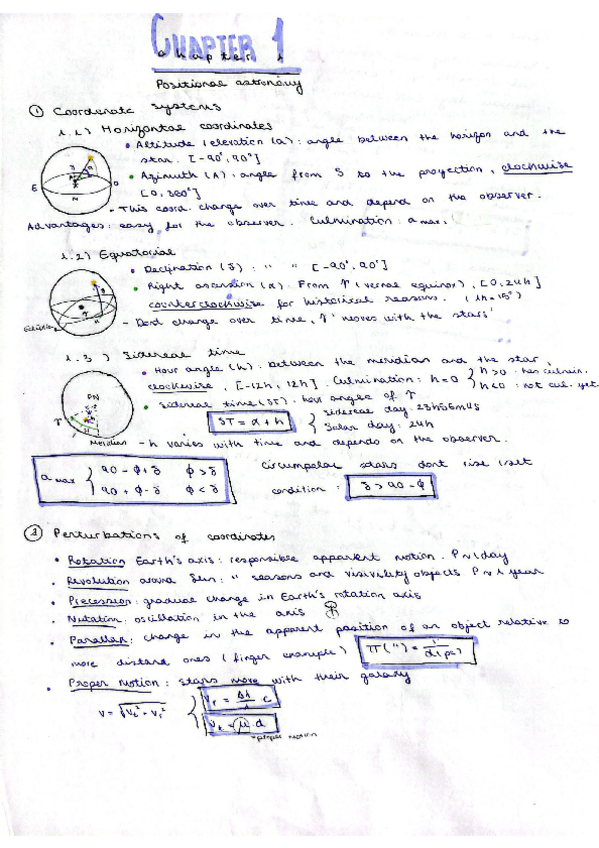 CHAPTER 1
chapter 1
Positional astronomy
① Coordenate systems
1.1) Horizontal coordinates
• Altitude / elevation (a): angle between the horizon and the
star. [-90°, 90°]
• Azimuth (A): angle from S to the proyection, clockwise
[0, 360°]
- This coord. change over time and depend on the observer.
Advantages: easy for the observer. Culmination: a max.
1.2) Equatorial
• Declination (δ): " " [-90°, 90°]
• Right ascension (α): From ϒ (vernal equinox), [0, 24h]
counterclockwise for historical reasons. (1h = 15°)
- Dont change over time, ϒ 'moves with the stars'
1.3) Sidereal time
• Hour angle (h): between the meridian and the star,
clockwise, [-12h, 12h]. Culmination: h=0 { h>0: has culmin.
h<0: not cul. yet
• Sidereal time (ST): hour angle of ϒ
ST = α + h { Sidereal day: 23h56m4s
Solar day: 24h
PN
Meridian
- h varies with time and depends on the observer.
a max { 90 - ϕ + δ ϕ > δ
90 + ϕ - δ ϕ < δ
circumpolar stars dont rise/set
condition: δ > 90 - ϕ
② Perturbations of coordinates
• Rotation Earth's axis: responsible apparent motion. P ~ 1 day
• Revolution around Sun: " seasons and visivility objects P ~ 1 year
• Precession: gradual change in Earth's rotation axis
• Nutation: oscillation in the axis
• Parallax: change in the apparent position of an object relative to
more distant ones (finger example) π(") = 1/d(pc)
• Proper Motion: stars move with their galaxy
v = √(v_t² + v_r²) { v_r = Δλ/λ c
v_t = μ · d
proper motion